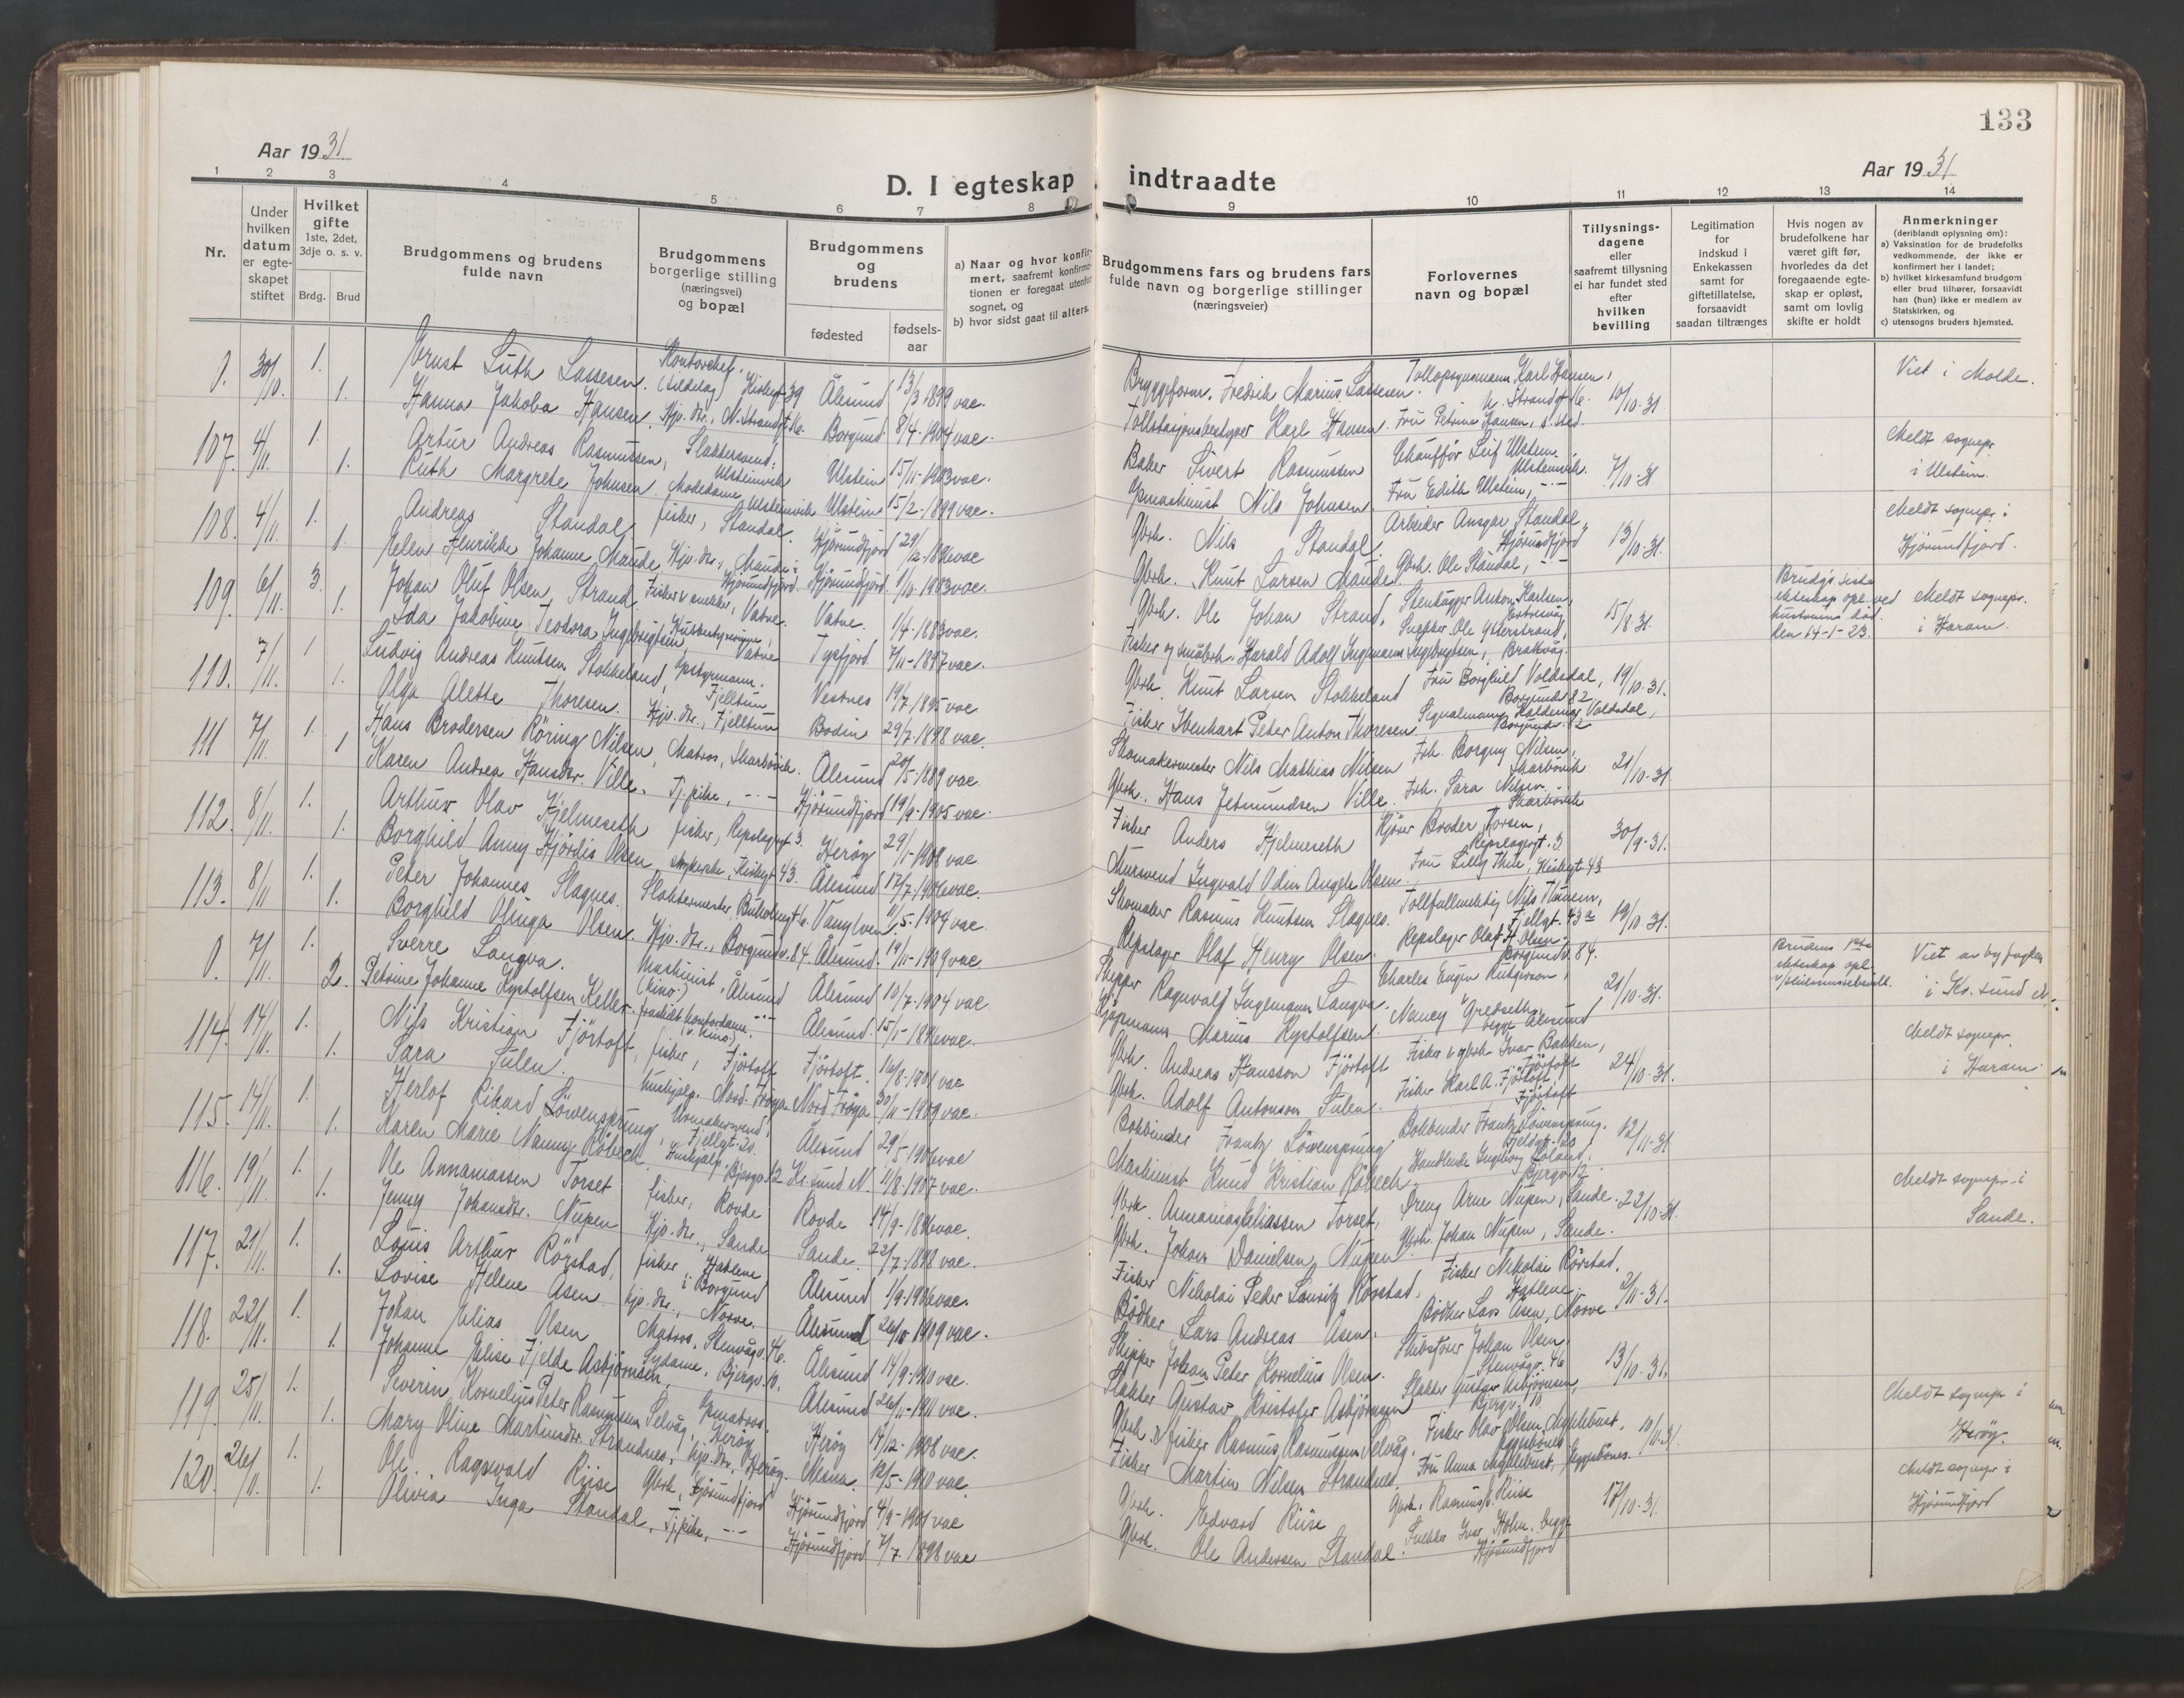 133
Aar 1931
D. I egteskap indtraadte
Aar 1931
1 2 3 4 5 6 7 8 9 10 11 12 13 14
Nr.
Under hvilken datum er egteskapet stiftet
Hvilket gifte 1ste, 2det, 3dje o. s. v.
Brdg. Brud
Brudgommens og brudens fulde navn
Brudgommens borgerlige stilling (næringsvei) og bopæl
Brudgommens og brudens
fødested
fødselsaar
a) Naar og hvor konfirmert, saafremt konfirmationen er foregaat utenfor sognet, og
b) hvor sidst gaat til alters.
Brudgommens fars og brudens fars fulde navn og borgerlige stillinger (næringsveier)
Forlovernes navn og bopæl
Tillysningsdagene eller saafremt tillysning ei har fundet sted efter hvilken bevilling
Legitimation for indskud i Enkekassen samt for giftetillatelse, forsaavidt saadan tiltrænges
Hvis nogen av brudefolkene har været gift før, hvorledes da det foregaaende egteskap er opløst, samt om lovlig skifte er holdt
Anmerkninger (deriblandt oplysning om):
a) Vaksination for de brudefolks vedkommende, der ikke er konfirmert her i landet;
b) hvilket kirkesamfund brudgom eller brud tilhører, forsaavidt han (hun) ikke er medlem av Statskirken, og
c) utensogns bruders hjemsted.
0. 30/10. 1. Ernst Luth Lassesen. Kontorchef. (Sildelag) Kirkegt 39 Ålesund 13/3 1899 vac. Bryggeform. Fredrik Marius Lassesen. Tollopsynsmann Karl Hansen, N. Strandgt 16. 10/10-31 Viet i Molde.
1. Hanna Jakoba Hansen, Hjv. dtr., N. Strandgt 16. Borgund 8/4-1904 vac. Tollstasjonsbestyrer Karl Hansen. Fru Petrine Hansen, s. sted.
107. 4/11. 1. Artur Andreas Rasmussen, Slaktersvend, Ulsteinvik Ulstein 15/11-1903 vac. Baker Sivert Rasmussen Chauffør Leif Ulstein. Ulsteinvik. 7/10-31 Meldt sognepr. i Ulstein.
1. Ruth Margrete Johnsen. Modedame Ulsteinvik Ulstein 15/2-1899 vac. Nils Johnsen. Fru Edith Ulstein, -"-
108. 4/11. 1. Andreas Standal, fisker, Standal. Hjørundfjord 29/12-1896 vac Gbrk. Nils Standal. Arbeider Ansgar Standal, Hjørundfjord 13/10-31. Meldt sognepr. i Hjørundfjord.
1. Helen Henrikke Johanne Maude Hjv. dtr., Maude i Hjørundfjord. Hjørundfjord 1/10-1903 vac. Gbrk. Knut Larsen Maude. Gbrk. Ole Standal, -"-
109. 6/11. 3. Johan Olut Olsen Strand. Fisker & snekker, Vatne. Vatne. 1/4-1883 vac. Gbrk. Ole Johan Strand. Stenhugger Anton Karlsen, 15/8-31. Brudg's siste ekteskap opl. ved hustruens død den 14-1-23. Meldt sognepr. i Haram.
1. Ida Jakobine Teodora Ingebrigtsen, Husbestyrerinne, Vatne Tysfjord. 7/11-1897 vac. Fisker og småbrk. Harald Adolf Ingemann Ingebrigtsen, Brattvåg. Snekker Ole Ytterstrand,
110. 7/11. 1. Ludvig Andreas Knutsen Stokkeland, Fjelltun Vestnes 19/7-1895 vac Gbrk. Knut Larsen Stokkeland Fru Borghild Voldsdal, Borgundv. 82 19/10-31.
1. Olga Alette Thoresen. Hjv. dtr., Fjelltun Bodin 29/7-1898 vac. Fisker Ibenhart Peder Anton Thoresen. Signalmann Haldemar Voldsdal, Borgundv. 82
111 7/11. 1. Hans Brodersen Röring Nilsen, Matros, Skarbövik. Ålesund 20/5-1889 vac. Skomakermester Nils Mathias Nilsen Frk. Borgny Nilsen, Skarbövik 21/10-31.
1 Karen Andrea Hansdtr. Ville. Tj. pike, -"- Hjörundfjord 19/9-1905 vac. Gbrk. Hans Jetmundsen Ville. Frk. Sara Nilsen. Skarbövik
112. 8/11. 1. Arthur Olav Hjelmeseth fisker, Repslagergt 3. Herøy 29/1-1901 vac Fisker Anders Hjelmeseth Kjører Broder Torsen, Repslagergt. 3 30/9-31.
1. Borghild Anny Hjördis Olsen, Kirkegt 43. Ålesund 17/7-1906 vac. Mursvend Ingvald Odin Angele Olsen. Fru Lilly Thue, Kirkegt. 43
113. 8/11 1. Peter Johannes Slagnes. Slaktermester, Vanylven. 11/5-1904 vac. Skomaker Rasmus Knutsen Slagnes. Tollfullmektig Nils Thunem, Fjellgt. 43 19/10-31.
1. Borghild Olinga Olsen. Hjv. dtr., Borgundv. 84. Ålesund. 19/11-1909 vac. Repslager Olaf Henry Olsen. Repslager Olaf H. Olsen. Borgundv. 84.
0. 7/11. 1. Sverre Langva. Maskinist, (kino.) Ålesund Ålesund 10/7-1904 vac. Skipper Ragnvald Ingemann Langva. Charles Eugen Rutgerson, 21/10-31. Brudens 1ste ekteskap opl. v/skilsmissebevill. Viet av byfogden i Kr. sund N.
2. Petrine Johanne Rystolfsen Keller. fraskilt kontordame (v. kino.) -"- Ålesund. 15/1-1896 vac. Kjøpmann Marius Rystolfsen Nancy Gredseth, begge Ålesund
114. 14/11. 1. Nils Kristian Fjörtoft, fisker, Fjörtoft Fjörtoft. 16/8-1901 vac Gbrk. Andreas Hansson Fjörtoft Fisker & gbrk Ivar Bakken, Fjörtoft 24/10-31. Meldt sognepr. i Haram
1. Sara Sulen. Hushjelp. Nord-Frøya. Nord-Frøya 30/11-1909 vac. Gbrk. Adolf Antonson Sulen. Fisker Karl A. Fjörtoft, Fjörtoft
115. 14/11. 1. Herlof Rikard Löwensprung, Urmakersvend, Fjellgt. 20. Ålesund 29/5-1906 vac Bokbinder Frantz Löwensprung Bokbinder Frantz Löwensprung. Fjeldgt. 20 12/11-31.
1. Karen Marie Nanny Röbech. Hushjelp. Bjørgv. 12 Kr. sund N. 11/8-1907 vac. Maskinist Knud Kristian Röbech. Handlende Ingeborg Röland, Bjergv. 12
116. 19/11. 1. Ole Annaniassen Torset fisker, Rovde Rovde 14/9-1886 vac. Gbrk. Annanias Eliassen Torset, Dreng Arne Nupen, Sande. 22/10-31. Meldt sognepr. i Sande.
1. Jenny Johansdtr. Nupen Hjv. dtr., Sande Sande. 22/7-1898 vac. Gbrk. Johan Danielsen Nupen. Gbrk. Johan Nupen, Sande.
117. 21/11. 1. Louis Arthur Rörstad, fisker Hatlene i Borgund Ålesund. 1/9-1906 vac. Fisker Nikolai Peder Lauritz Rörstad. Fisker Nikolai Rörstad, Hatlene 2/11-31.
1. Lovise Helene Åsen. hjv. dtr., Nörve. Ålesund 26/10-1909 vac. Bödker Lars Andreas Åsen. Bödker Lars Åsen, Nörve
118. 22/11. 1. Johan Elias Olsen Matros, Stenvågv. 46. Ålesund 14/9-1910 vac. Skipper Johan Peter Kornelius Olsen. Skibsfører Johan Olsen, Stenvågv. 46 13/10-31.
1. Johanne Elise Fjelde Asbjörnsen. Sydame, Bjergv. 10. Ålesund 26/11-1911 vac. Slakter Gustav Kristofer Asbjörnsen Slakter Gustav Asbjörnsen, Bjergv. 10
119. 25/11. 1. Severin Kornelius Peter Rasmussen Selvåg, Herøy Herøy 14/12-1908 vac. Gbrk. & fisker Rasmus Rasmussen Selvåg. Fisker Olav Olsen Myklebust, Eggesbönes 10/11-31. Meldt sognepr i Herøy.
1. Mary Oline Martinsdtr. Strandnes, hjv. dtr., Herøy. 12/5-1910 vac. Fisker Martin Nilsen Strandnes. Fru Anna Myklebust, Eggesbönes.
120. 26/11. 1. Ole Ragnvald Riise Gbrk, Hjörundfjord Hjörundfjord 4/9-1901 vac Gbrk. Edvard Riise Gbrk. Rasmus E. Riise 17/10-31. Meldt sognepr i Hjörundfjord
1. Olivia Inga Standal, Tj. pike, -"- Hjörundfjord 7/7-1898 vac Gbrk. Ole Andersen Standal. Snekker Ivar Holm, begge Hjörundfjord